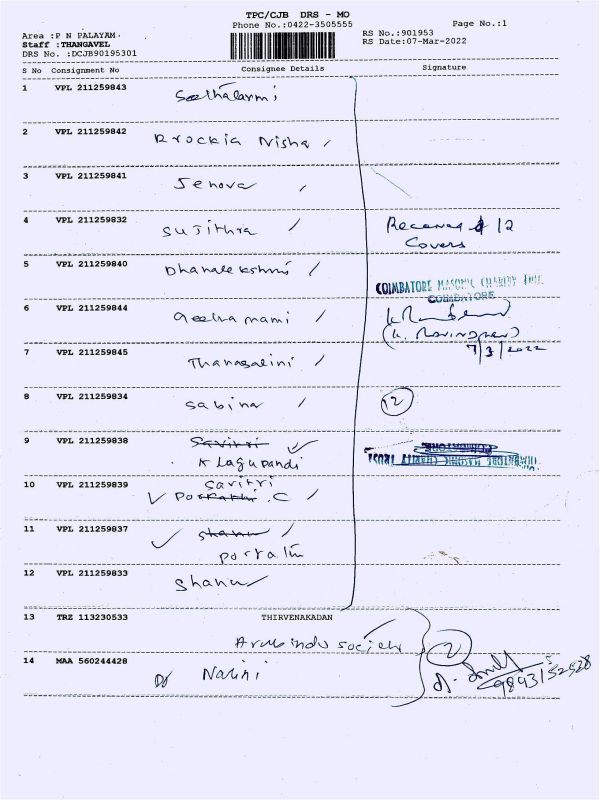 TPC/CJB DRS - MO
Phone No.:0422-3505555
Page No.:1
Area :P N PALAYAM.
Staff :THANGAVEL
DRS No. :DCJB90195301
RS No.:901953
RS Date:07-Mar-2022
S No Consignment No Consignee Details Signature
1 VPL 211259843
2 VPL 211259842 Arockia Nisha
3 VPL 211259841 Jenova
4 VPL 211259832 Sujithra
Received 12
Covers
5 VPL 211259840 Dhanalekshmi
COIMBATORE MASONIC CHARITY TRUST
COIMBATORE
6 VPL 211259844 Geetha mami
7/3/2022
7 VPL 211259845
8 VPL 211259834 Sabina 12
9 VPL 211259838 Savitri
COIMBATORE
COIMBATORE MASONIC CHARITY TRUST
10 VPL 211259839 Savitri
C
11 VPL 211259837 Shanu
12 VPL 211259833 Shanu
13 TRZ 113230533 THIRVENAKADAN
society
2
14 MAA 560244428 Dr Nalini